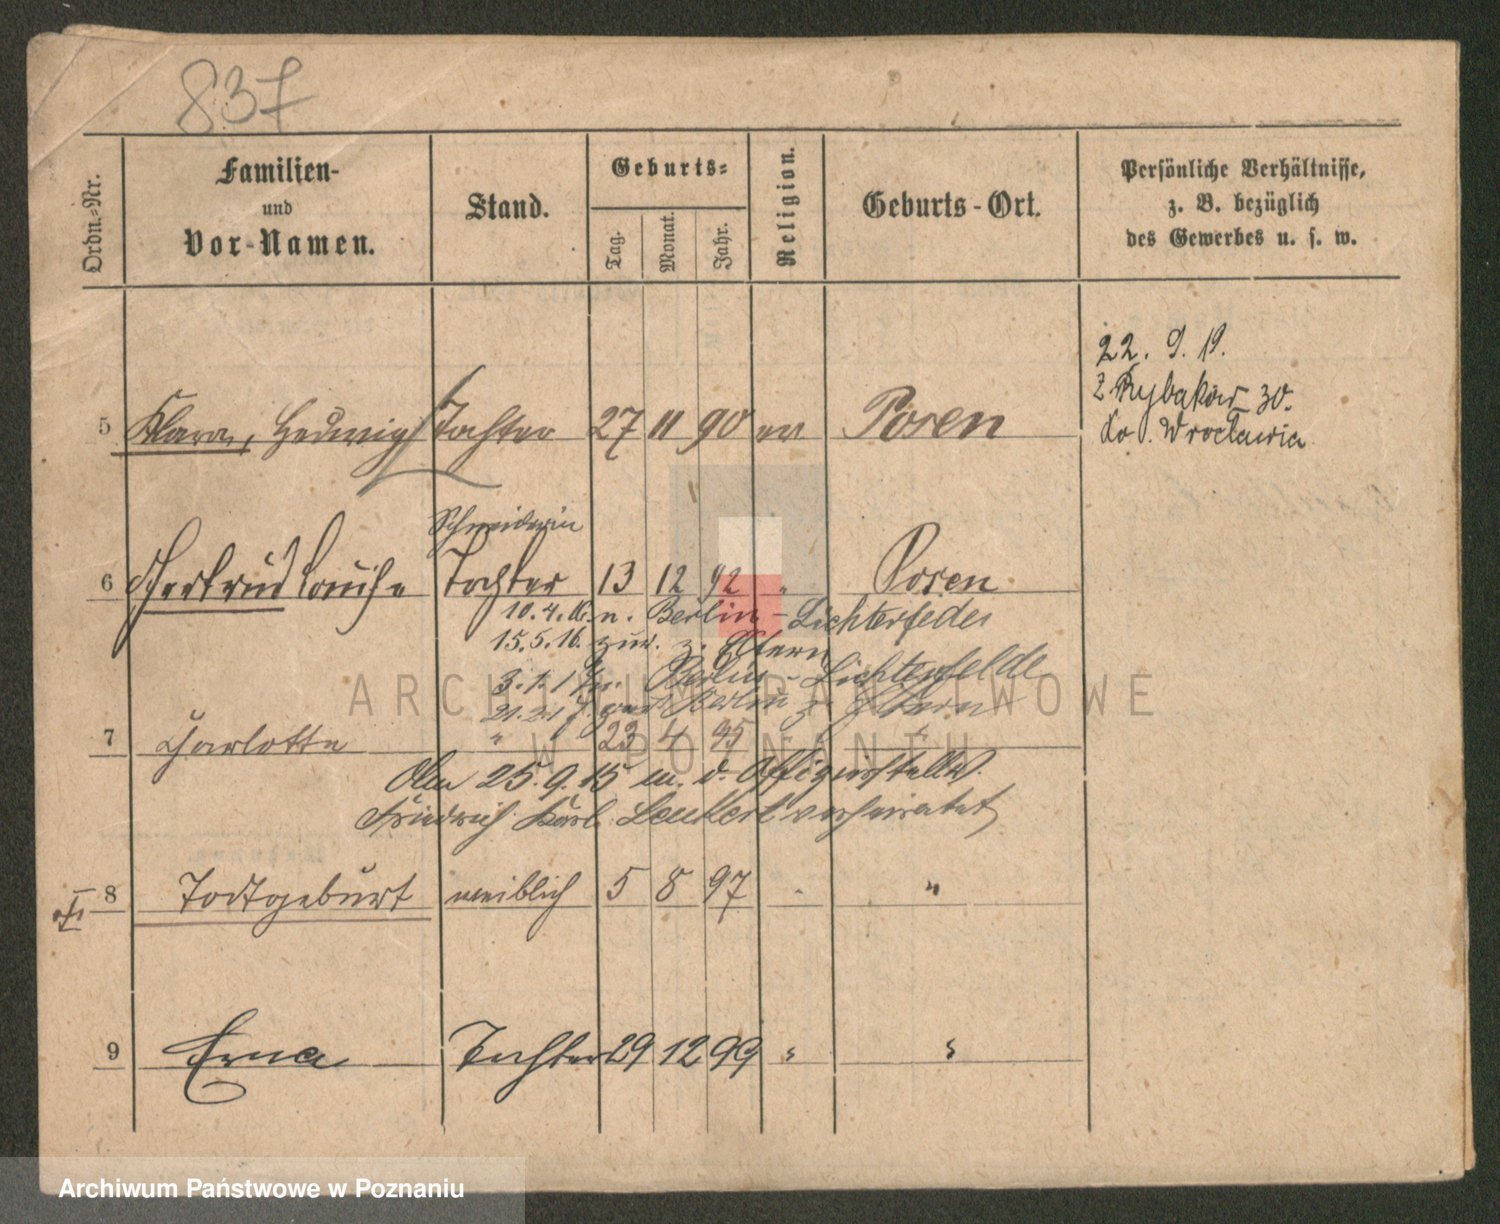 837
Ordn.-Nr.
Familien-
und
Vor-Namen.
Stand.
Geburts-
Tag.
Monat.
Jahr.
Religion.
Geburts-Ort.
Persönliche Verhältnisse,
z. B. bezüglich
des Gewerbes u. s. w.
22. 9. 19.
z Rybaków 30.
do Wrocławia
5 Klara, Hedwig Tochter 27 11 90 ev Posen
Schneiderin
6 Gertrud Louise Tochter 13 12 92 " Posen
10.4.16. n. Berlin-Lichterfelde
15.5.16. zur. z. Eltern
3.1.17 n. Berlin-Lichterfelde
21.2.17 Berlin z. Eltern
7 Charlotte " 23 4 95 " "
Am 25.9.15 m. d.
Friedrich Karl verheiratet
8 Todtgeburt weiblich 5 8 97 " "
9 Erna Tochter 29 12 99 " "
ARCHIWUM PAŃSTWOWE
W POZNANIU
Archiwum Państwowe w Poznaniu